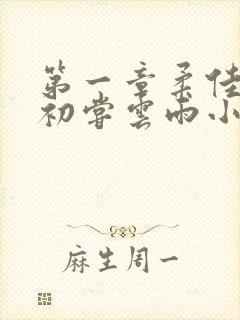 第一章柔佳
初尝雲雨小
麻生周一